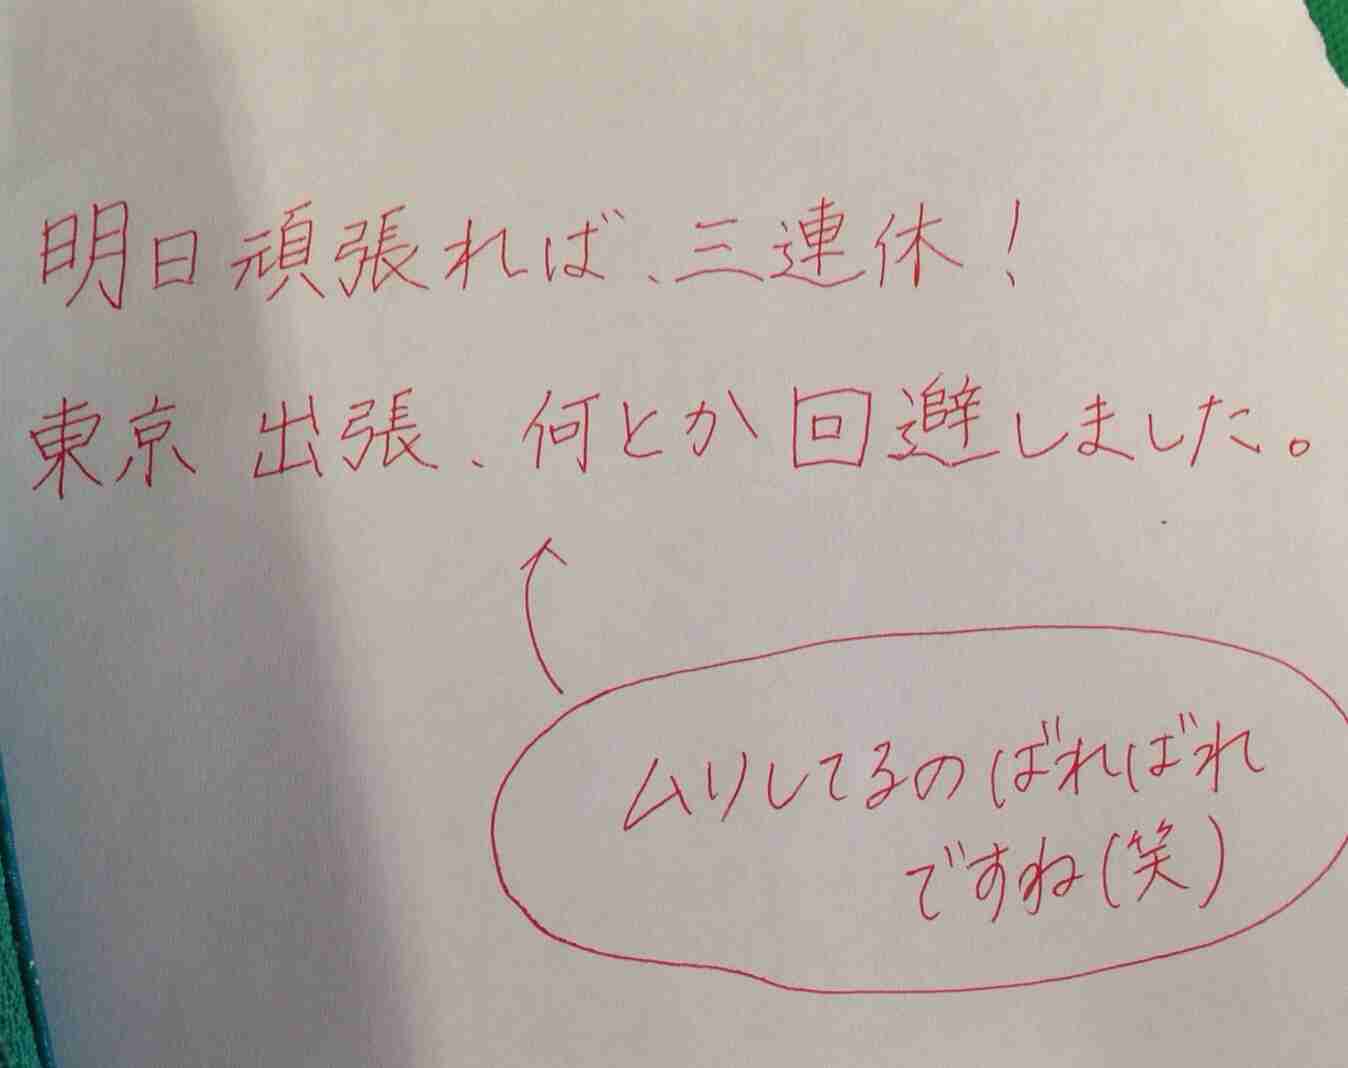 明日頑張れば、三連休！
東京出張、何とか回避しました。
ムリしてるのばればれ
ですね(笑)